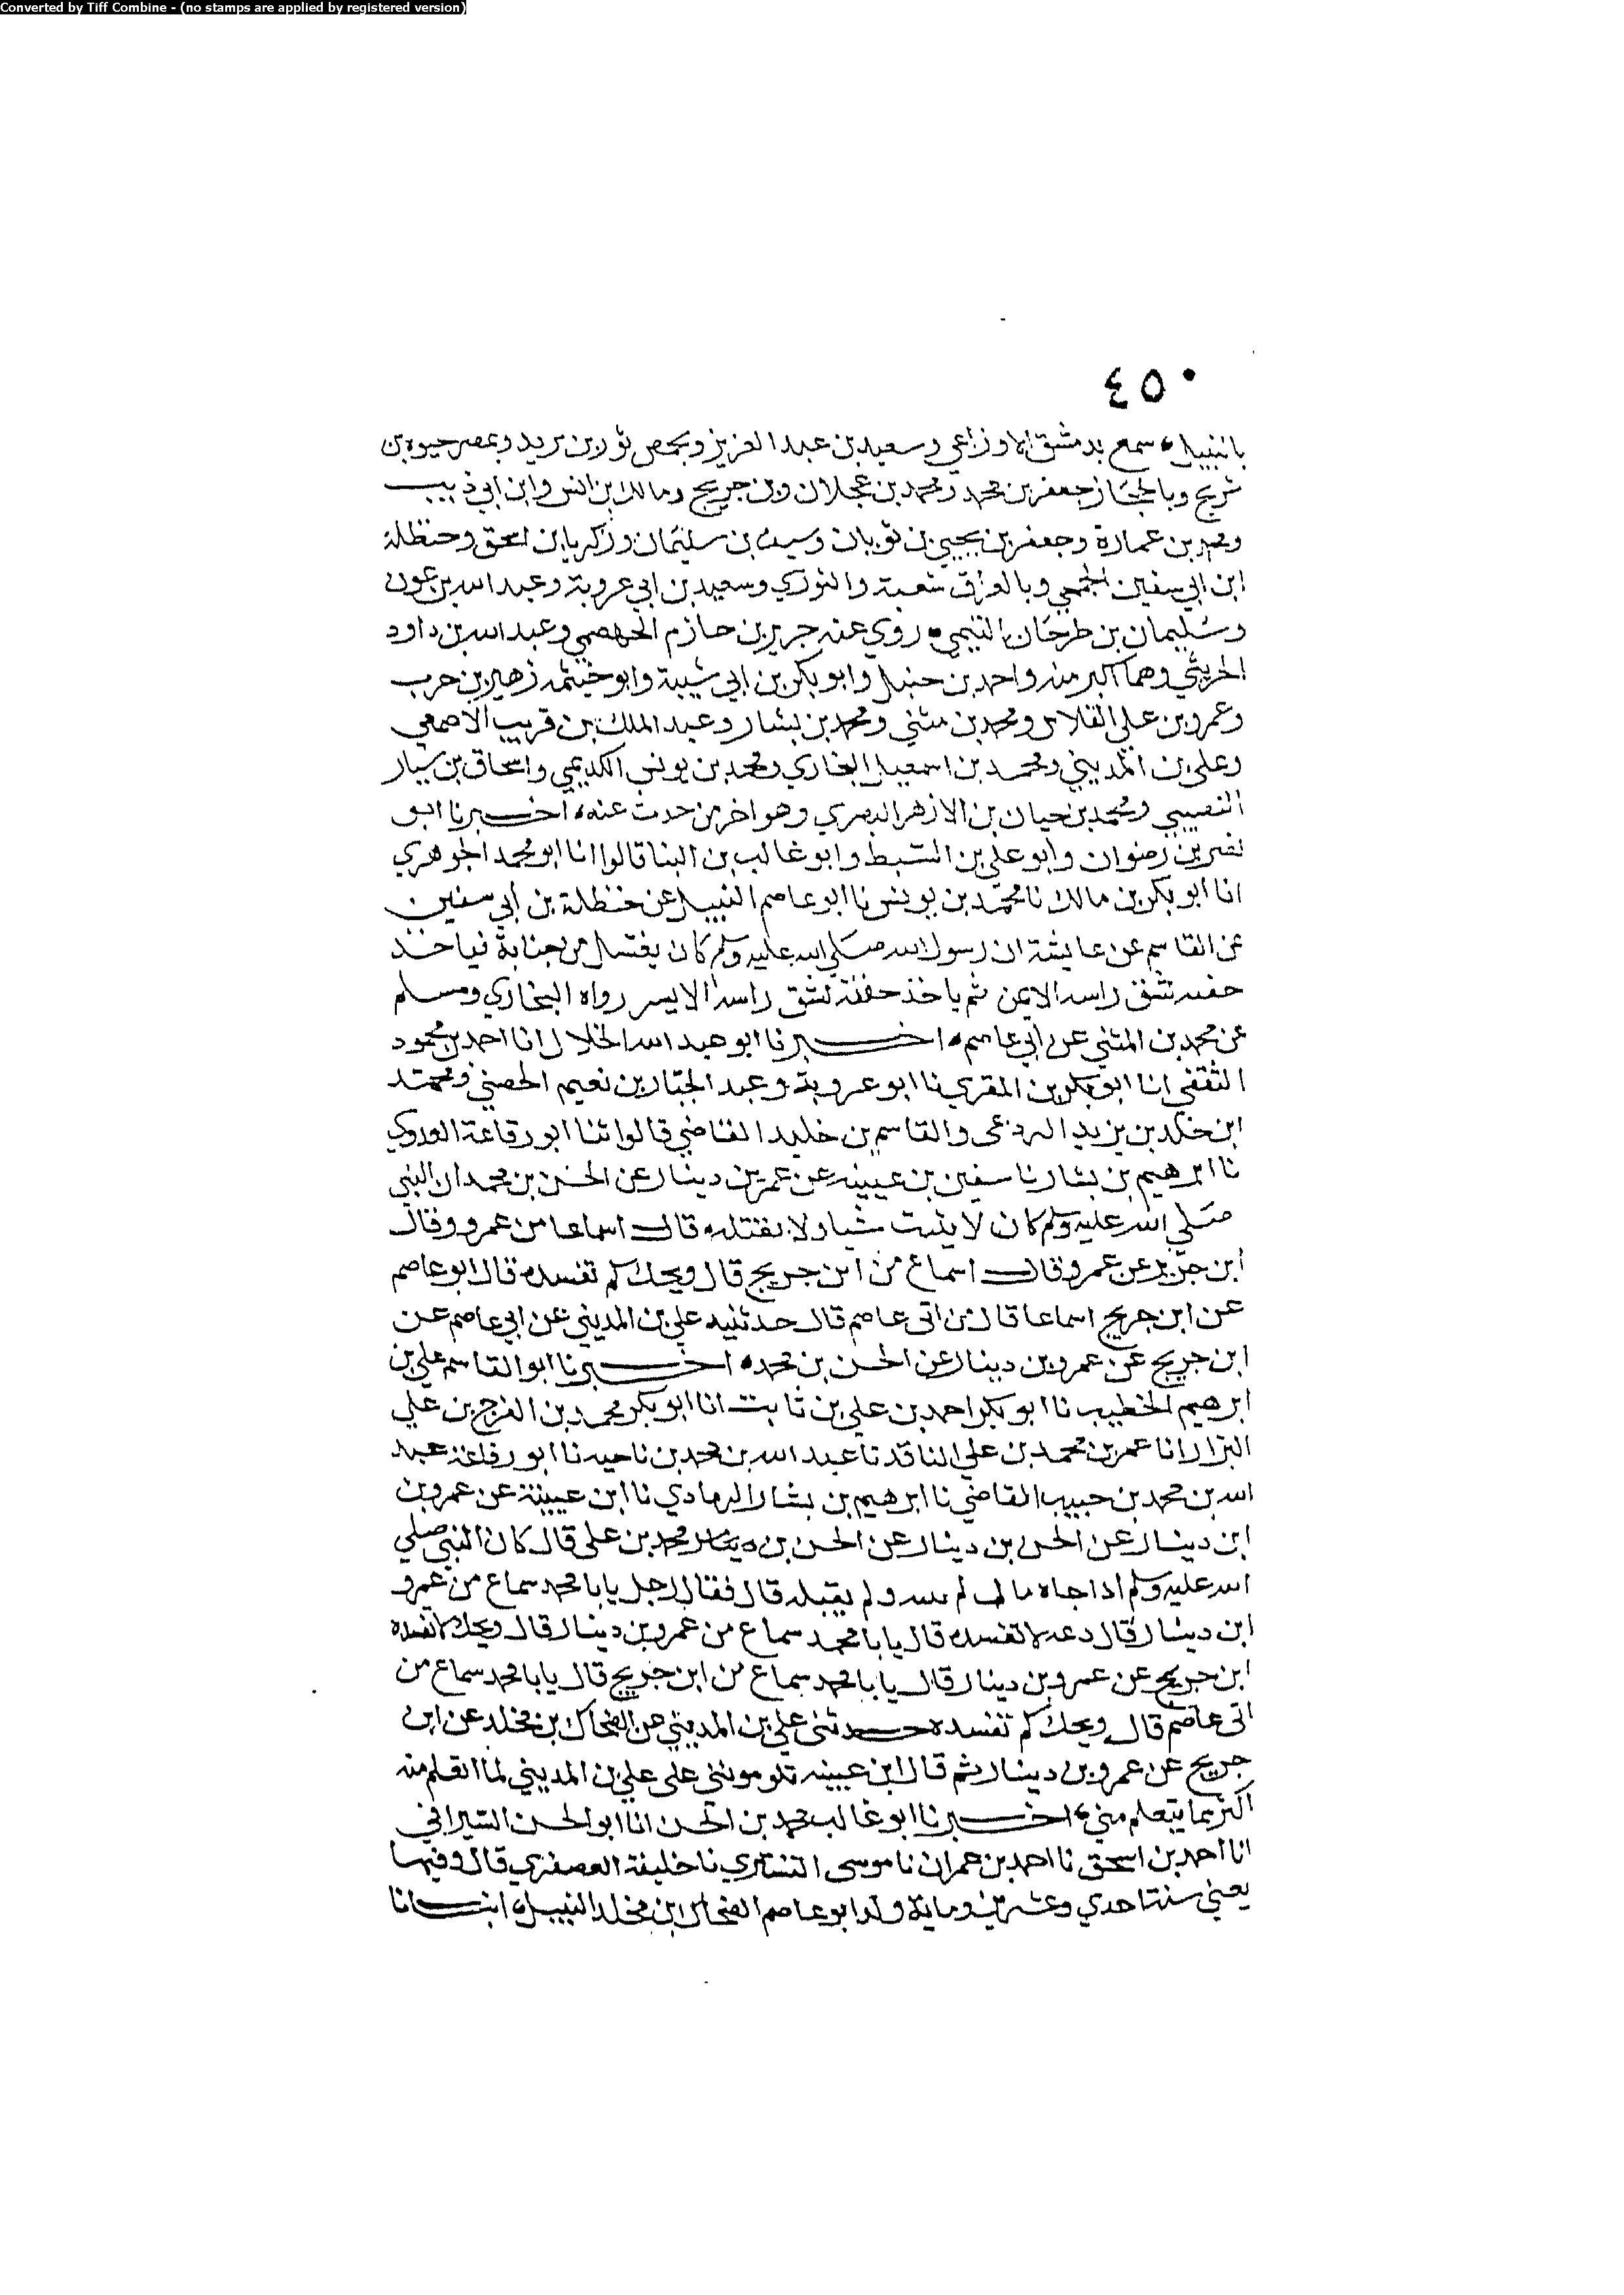 Converted by Tiff Combine - (no stamps are applied by registered version)
٤٥٠
بالنبيل، سمع بدمشق الاوزاعي وسعيد بن عبد العزيز وبحمص ثور بن يزيد وبمصر حيوه بن
شريح وبالحجاز جعفر بن محمد ومحمد بن عجلان وبن جريج ومالك بن انس وابن ابي ذييب
ومحمد بن عمارة وجعفر بن يحيي بن ثوبان وسيف بن سليمان وزكريا بن اسحق وحنظلة
ابن ابي سفين الجمحي وبالعراق شعبة والثوري وسعيد بن ابي عروبة وعبد الله بن عون
وسليمان بن طرخان التيمي، روي عنه جرير بن حازم الجهضمي وعبد الله بن داود
الخريبي وهما اكبر منه واحمد بن حنبل وابو بكر بن ابي شيبة وابو خيثمه زهير بن حرب
وعمرو بن علي الفلاس ومحمد بن مثني ومحمد بن بشار وعبد الملك بن قريب الاصمعي
وعلي بن المديني ومحمد بن اسمعيل البخاري ومحمد بن يونس الكديمي واسحاق بن سيار
النصيبي ومحمد بن حيان بن الازهر البصري وهو اخر من حدث عنه، اخبرنا ابو
نصر بن رضوان وابو علي بن السبط وابو غالب بن البنا قالوا انا ابو محمد الجوهري
انا ابو بكر بن مالك نا محمد بن يونس نا ابو عاصم النبيل عن حنظلة بن أبي سفين
عن القاسم عن عايشة ان رسول الله صلي الله عليه وسلم كان يغتسل من جنابة فياخذ
حفنه لشق راسه الايمن ثم ياخذ حفنة لشق راسه الايسر رواه البخاري ومسلم
عن محمد بن المثني عن ابي عاصم، اخبرنا ابو عبد الله الخلال انا احمد بن محمود
الثقفي انا ابو بكر بن المقري نا ابو عروبة وعبد الجبار بن نعيم الحصني ومحمد
ابن خلد بن يزيد البردعي والقاسم بن خليد القاضي قالوا ثنا ابو رفاعة العدوي
نا ابرهيم بن بشار نا سفين بن عيينه عن عمرو بن دينار عن الحسن بن محمد ان النبي
صلي الله عليه وسلم كان لا يبيت شيا ولا يقتله، قال اسماعا من عمرو وقال
ابن جريج عن عمرو قال اسماع من ابن جريج قال ويحك كم تفسده قال ابو عاصم
عن ابن جريج اسماعا قال من اتى عاصم قال حدثنيه علي بن المديني عن ابي عاصم عن
ابن جريج عن عمرو بن دينار عن الحسن بن محمد، اخبرنا ابو القاسم علي بن
ابرهيم الخطيب نا ابو بكر احمد بن علي بن ثابت انا ابو بكر محمد بن الفرج بن علي
البزار انا عمر بن محمد بن علي الناقد نا عبد الله بن محمد بن ناحيه نا ابو رفاعة عبد
الله بن محمد بن حبيب القاضي نا ابرهيم بن بشار الرمادي نا ابن عيينة عن عمرو بن
ابن دينار عن الحسن بن دينار عن الحسن بن محمد بن على قال كان النبي صلي
الله عليه وسلم اذا جاه مال لم يبيته ولم يقيله قال فقال رجل يابا محمد سماع من عمرو
ابن دينار قال دعه لا تفسده قال يابا محمد سماع من عمرو بن دينار قال ويحك لا تفسده
ابن جريج عن عمرو بن دينار قال يابا محمد سماع من ابن جريج قال يابا محمد سماع من
اتى عاصم قال ويحك كم تفسده حدثنى علي بن المديني عن الضحاك بن مخلد عن ابن
جريج عن عمرو بن دينار ثم قال ابن عيينه تلومونني على علي بن المديني لما اتعلم منه
اكثر مما يتعلم مني، اخبرنا ابو غالب محمد بن الحسن انا ابو الحسن السيرافي
انا احمد بن اسحق نا احمد بن عمران نا موسى التستري نا خليفة العصفري قال وفيها
يعني سنة احدي وعشرين وماية ولد ابو عاصم الضحاك ابن مخلد النبيل، انبانا